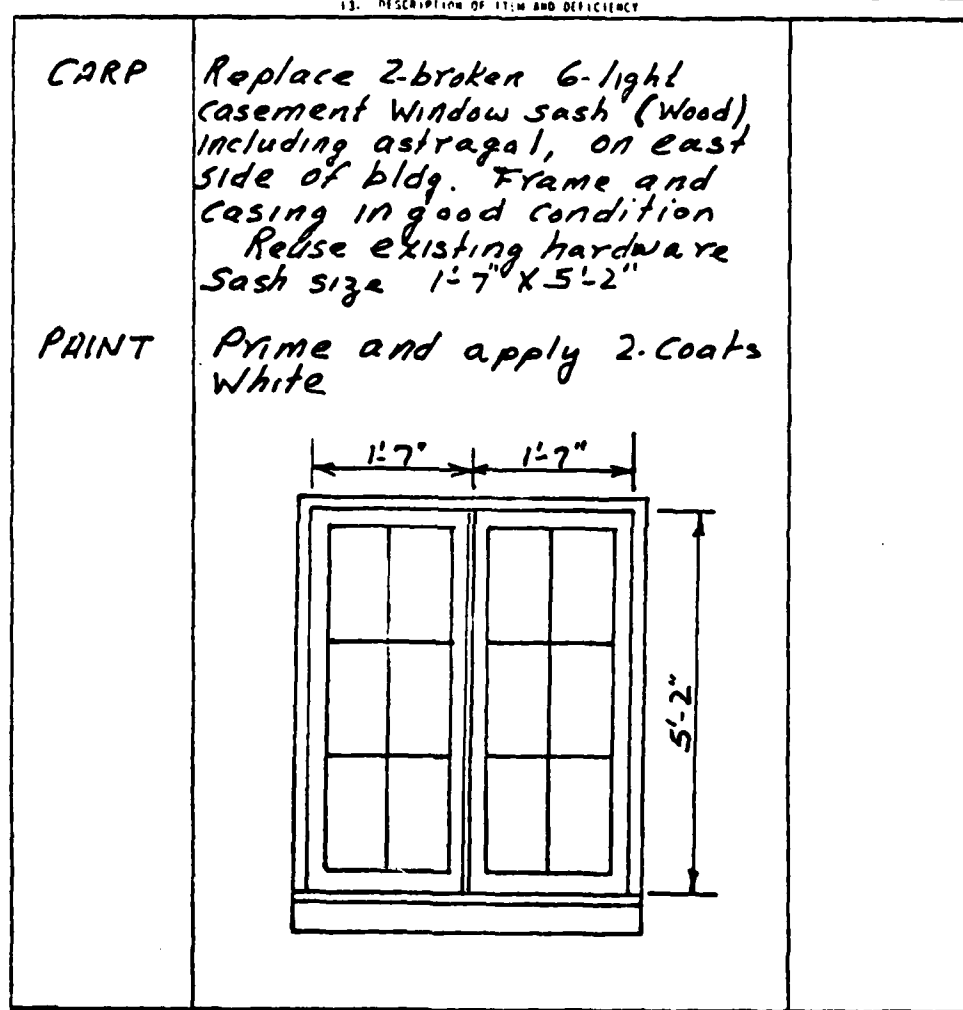 13. DESCRIPTION OF ITEM AND DEFICIENCY
CARP Replace 2-broken 6-light
casement Window sash (Wood)
including astragal, on east
side of bldg. Frame and
casing in good condition
Reuse existing hardware
Sash size 1'-7" X 5'-2"
PAINT Prime and apply 2-Coats
White
1'-7" 1'-7"
5'-2"